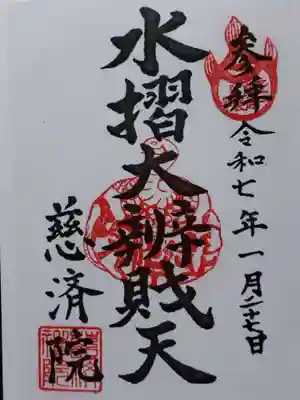 参拝
令和七年一月二十七日
水摺大辯財天
慈済院